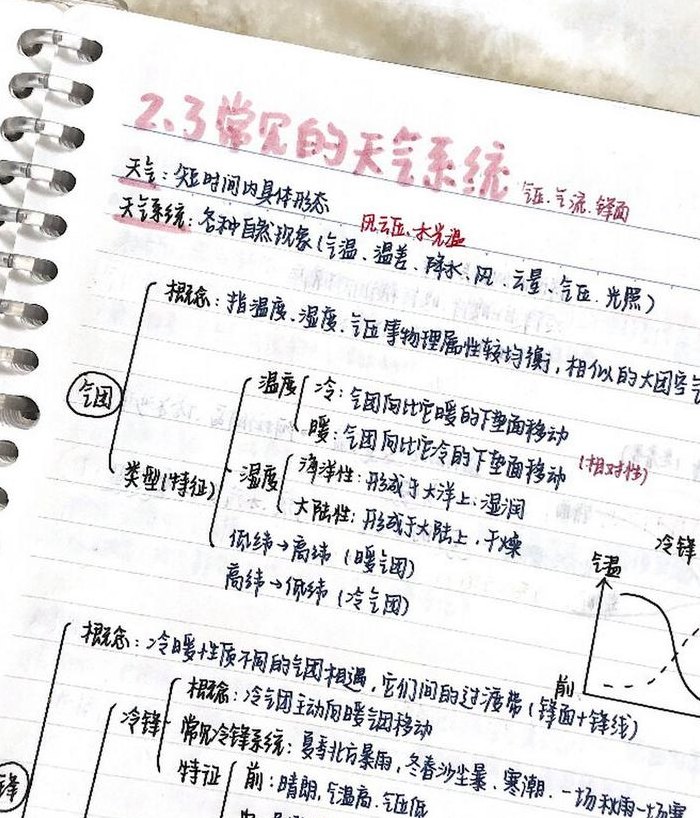 2.3常见的天气系统
气压、气流、锋面
天气：短时间内具体形态
风云压、水光温
天气系统：各种自然现象（气温、温差、降水、风、云量、气压、光照）
概念：指温度、湿度、气压等物理属性较均衡，相似的大团空气
气团
温度 冷：气团向比它暖的下垫面移动
暖：气团向比它冷的下垫面移动
（相对性）
类型（特征）
湿度 海洋性：形成于大洋上，湿润
大陆性：形成于大陆上，干燥
低纬→高纬（暖气团）
高纬→低纬（冷气团）
冷锋
气温
前
概念：冷暖性质不同的气团相遇，它们间的过渡带（锋面+锋线）
冷锋 概念：冷气团主动向暖气团移动
常见冷锋系统：夏季北方暴雨，冬春沙尘暴、寒潮、一场秋雨一场寒
特征 前：晴朗，气温高、气压低
锋